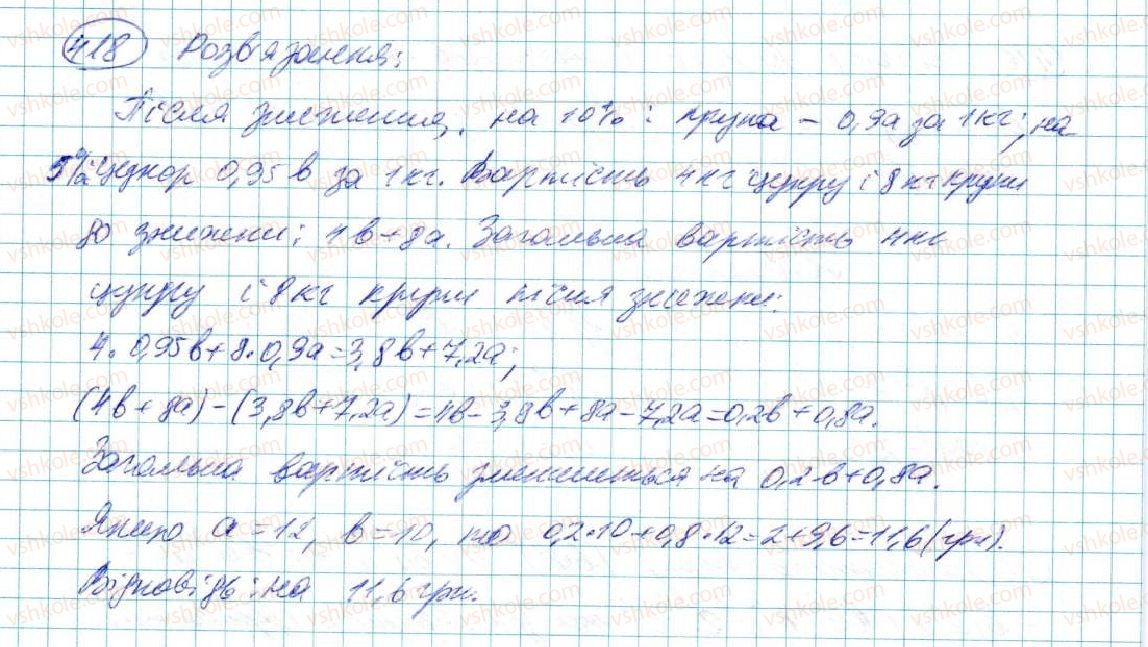 418 Розв'язання:
Після зниження, на 10% : крупа – 0,9a за 1кг; на
5% цукор 0,95 в за 1кг. Вартість 4кг цукру і 8 кг крупи
до знижки: 4в+8a. Загальна вартість 4кг
цукру і 8кг крупи після знижки:
4·0,95в+8·0,9a=3,8в+7,2a;
(4в+8a)-(3,8в+7,2a)=4в-3,8в+8a-7,2a=0,2в+0,8a.
Загальна вартість зменшиться на 0,2в+0,8a.
Якщо a=12, в=10, то 0,2·10+0,8·12=2+9,6=11,6(грн).
Відповідь: на 11,6 грн.